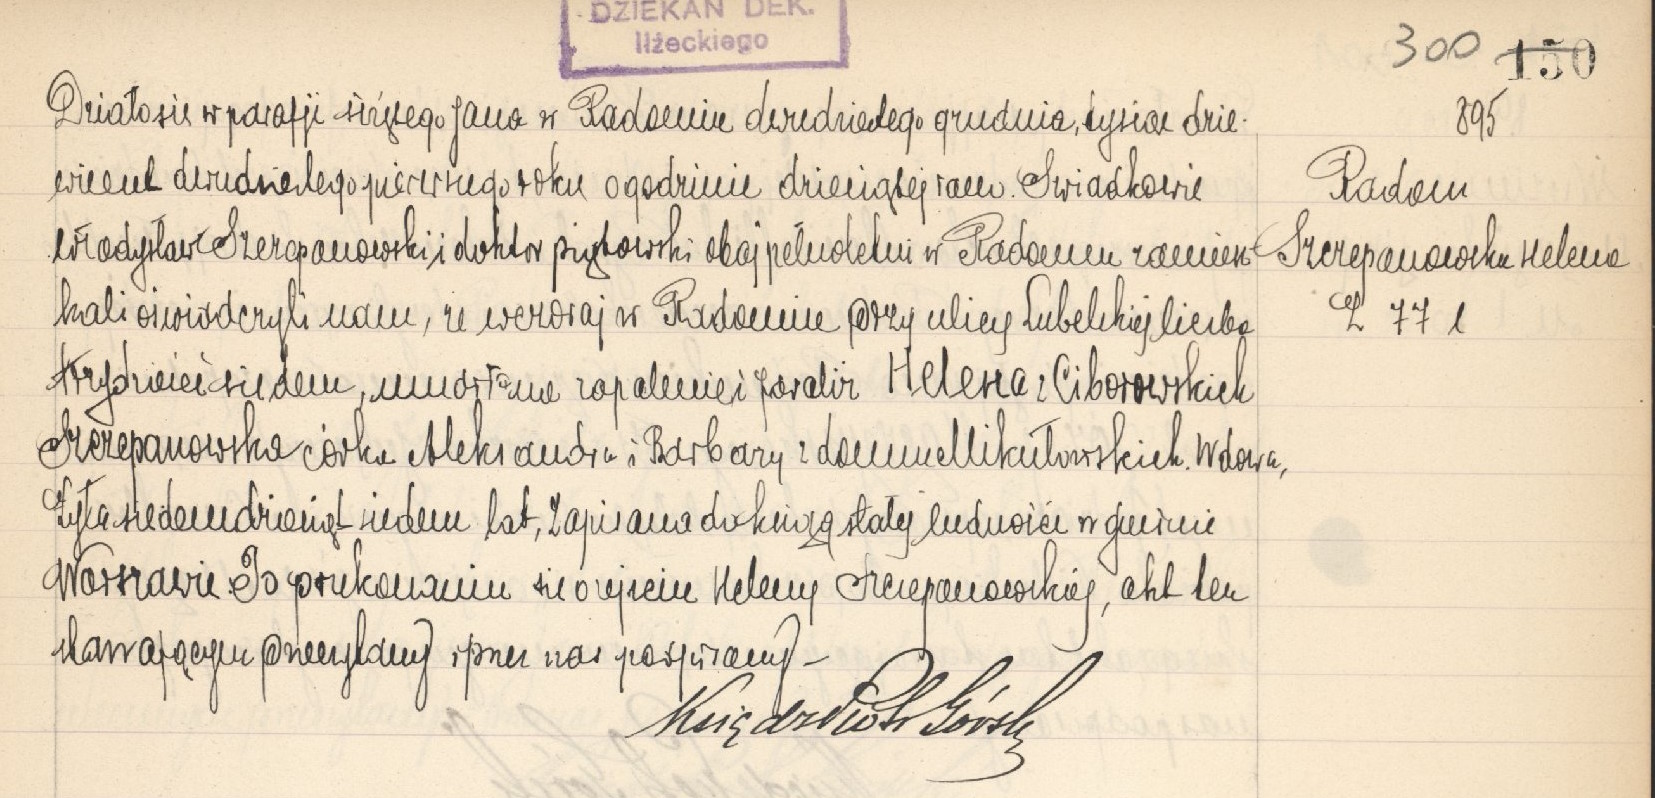 DZIEKAN DEK.
Iłżeckiego
300 150
Działo się w parafji świętego Jana w Radomiu dwudziestego grudnia, tysiąc dzie-
więćset dwudziestego pierwszego roku o godzinie dziesiątej rano. Świadkowie
Władysław Szczepanowski i doktor Piątkowski obaj pełnoletni w Radomiu zamiesz-
kali oświadczyli nam, że wczoraj w Radomiu przy ulicy Lubelskiej liczba
trzydzieści siedem, umarła na zapalenie Helena z Ciborowskich
Szczepanowska córka Aleksandra i Barbary z domu Mikułowskich. Wdowa,
Żyła siedemdziesiąt siedem lat, Zapisana do ksiąg stałej ludności w gminie
Warszawie. Po przekonaniu się o zejściu Heleny Szczepanowskiej, akt ten
stawającym przeczytany i przez nas podpisany –
Ksiądz Piotr Górski
895
Radom
Szczepanowska Helena
Ż 77 l